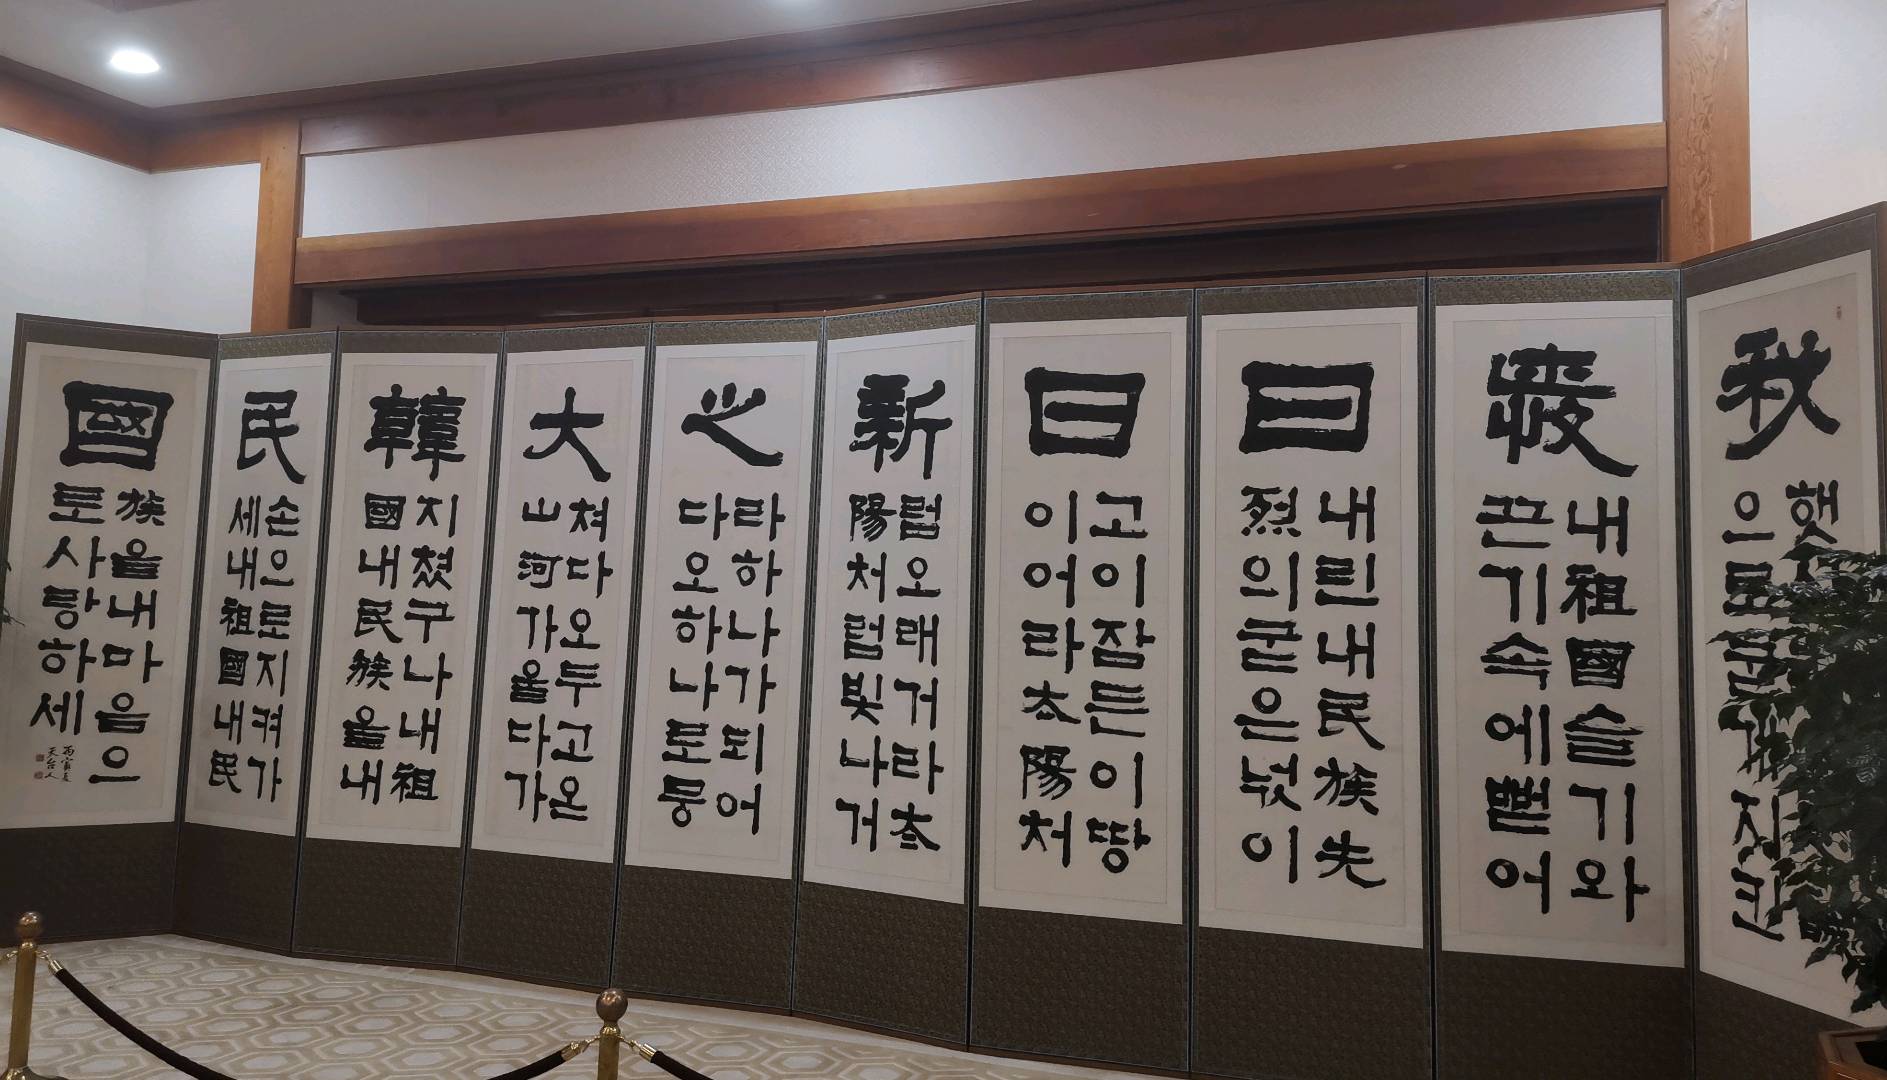 秋
햇
으로굳게지킨
내祖國슬기와
끈기속에뻗어
日
내린내民族先
烈의굳은넋이
日
고이잠든이땅
이어라太陽처
新
럼오래거라太
陽처럼빛나거
之
라하나가되어
다오하나로뭉
大
쳐다오두고온
山河가울다가
韓
지쳤구나내祖
國내民族을내
民
손으로지켜가
세내祖國내民
國
族을내마음으
로사랑하세
丙寅夏
天台人